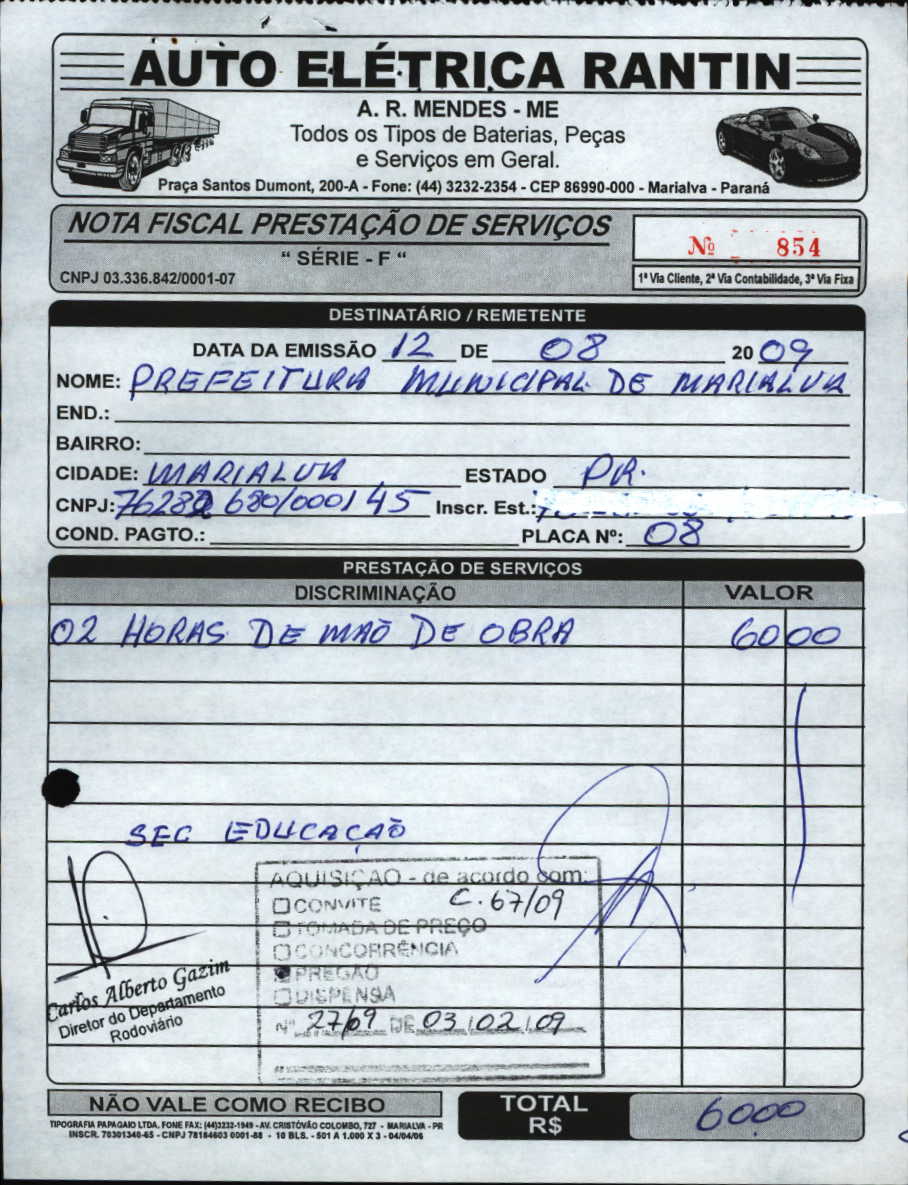 AUTO ELÉTRICA RANTIN
A. R. MENDES - ME
Todos os Tipos de Baterias, Peças
e Serviços em Geral.
Praça Santos Dumont, 200-A - Fone: (44) 3232-2354 - CEP 86990-000 - Marialva - Paraná
NOTA FISCAL PRESTAÇÃO DE SERVIÇOS
" SÉRIE - F "
CNPJ 03.336.842/0001-07
Nº 854
1ª Via Cliente, 2ª Via Contabilidade, 3ª Via Fixa
DESTINATÁRIO / REMETENTE
DATA DA EMISSÃO 12 DE 08 2009
NOME: PREFEITURA MUNICIPAL DE MARIALVA
END.:
BAIRRO:
CIDADE: MARIALVA ESTADO PR.
CNPJ: 76282 680/0001 45 Inscr. Est.:
COND. PAGTO.: PLACA Nº: 08
PRESTAÇÃO DE SERVIÇOS
DISCRIMINAÇÃO VALOR
02 HORAS DE MAÕ DE OBRA 60 00
SEC EDUCAÇAÕ
AQUISIÇÃO - de acordo com:
CONVITE C. 67/09
TOMADA DE PREÇO
CONCORRÊNCIA
PREGÃO
DISPENSA
Nº 27/09 DE 03/02/09
Carlos Alberto Gazim
Diretor do Departamento
Rodoviário
NÃO VALE COMO RECIBO
TOTAL
R$ 6000
TIPOGRAFIA PAPAGAIO LTDA. FONE FAX: (44)3232-1949 - AV. CRISTÓVÃO COLOMBO, 727 - MARIALVA - PR
INSCR. 70301340-65 - CNPJ 78184603 0001-88 - 10 BLS. - 501 A 1.000 X 3 - 04/04/06